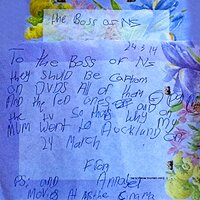 the Boss of NS
24 3 14
To the Boss of NS
they Shuld Be cartons
on DVDS All of them
And the red ones and of
the tv So thats why my
MUM Went to Auckland on
24 March
Flen
PS: and Annabel
Movies At the Cinama